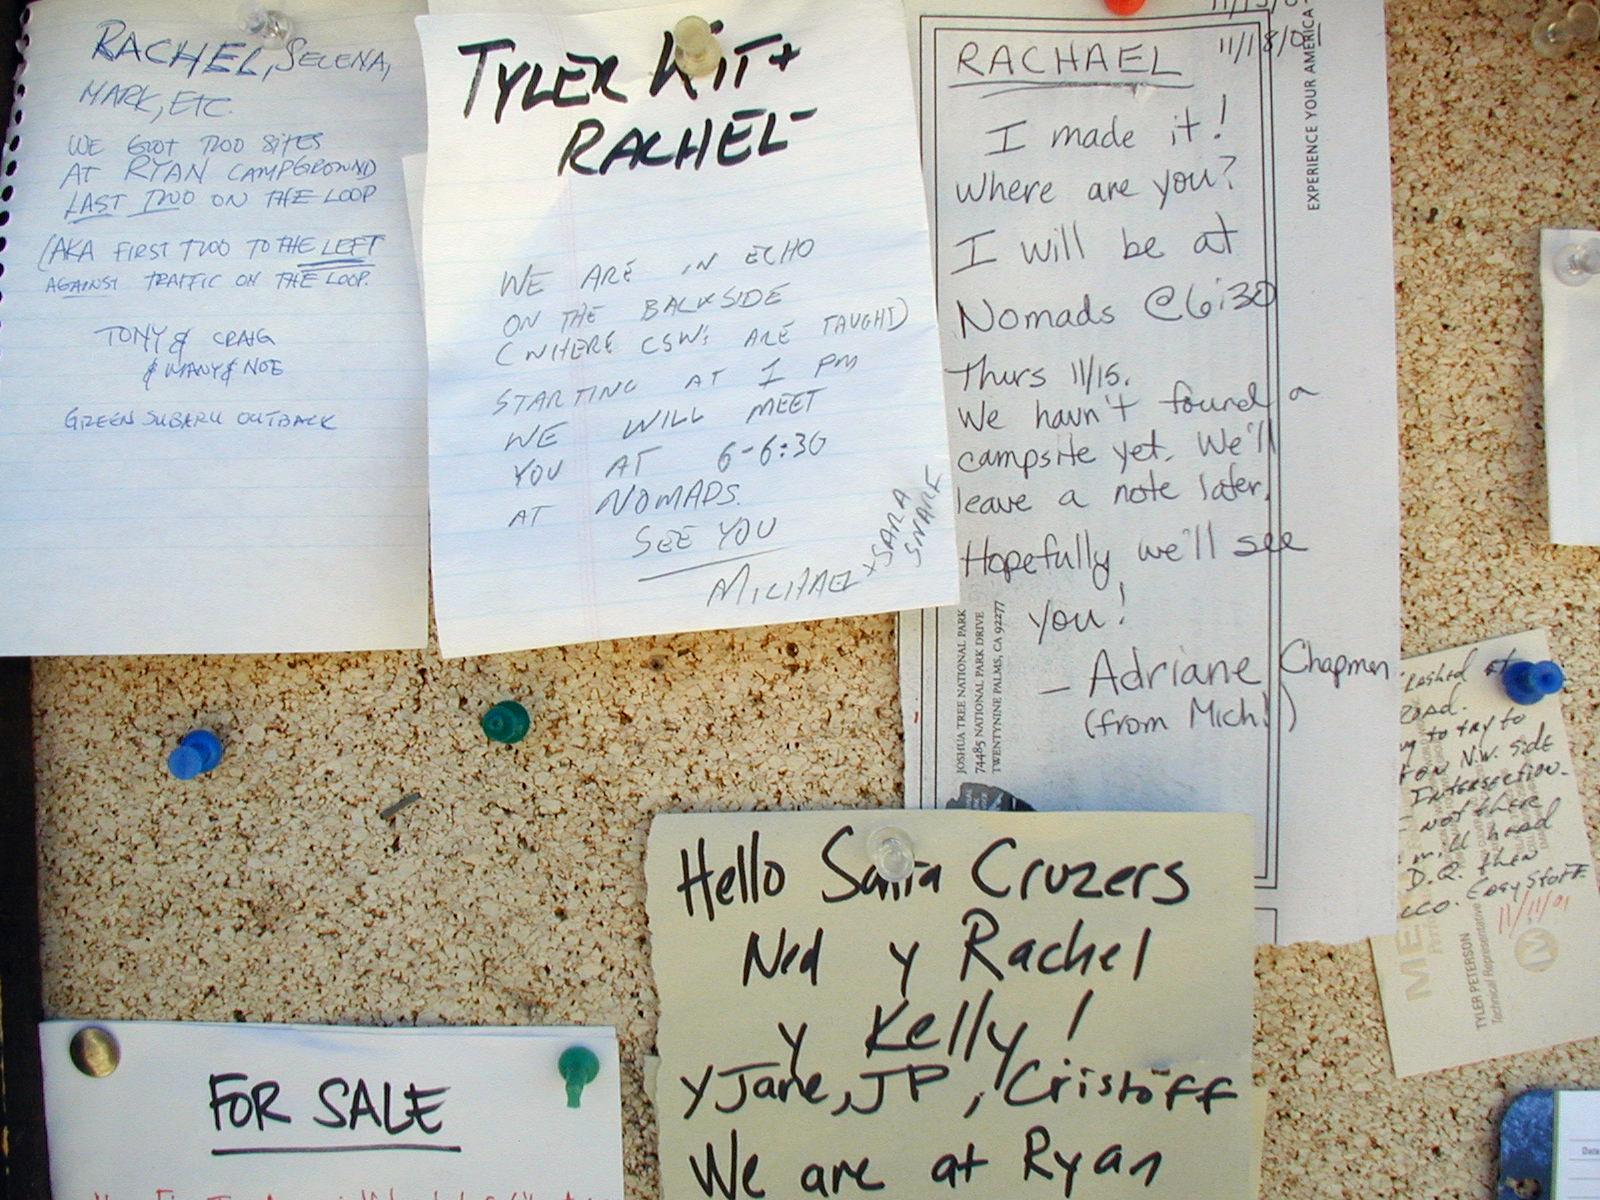 RACHEL, SELENA,
MARK, ETC.
WE GOT TWO SITES
AT RYAN CAMPGROUND
LAST TWO ON THE LOOP
(AKA FIRST TWO TO THE LEFT
AGAINST TRAFFIC ON THE LOOP.
TONY & CRAIG
& WANY & NOE
GREEN SUBARU OUTBACK
TYLER KIT +
RACHEL -
WE ARE IN ECHO
ON THE BACKSIDE
(WHERE CSW: ARE TAUGHT)
STARTING AT 1 PM
WE WILL MEET
YOU AT 6-6:30
AT NOMADS.
SEE YOU
MICHAEL
+ SARA
SNARF
11/18/0
RACHAEL
I made it!
Where are you?
I will be at
Nomads @ 6:30
Thurs 11/15.
We havn't found a
campsite yet. We'll
leave a note later.
Hopefully we'll see
you!
- Adriane Chapman
(from Mich!)
EXPERIENCE YOUR AMERICA
JOSHUA TREE NATIONAL PARK
74485 NATIONAL PARK DRIVE
TWENTYNINE PALMS, CA 92277
Hello Santa Cruzers
Ned y Rachel
y Kelly!
y Jane, JP, Cristoff
We are at Ryan
FOR SALE
at
to try to
ON N.W. side
INTERSECTION.
Not there
will head
D.Q. then
11/11/01
TYLER PETERSON
Technical Representative
Date